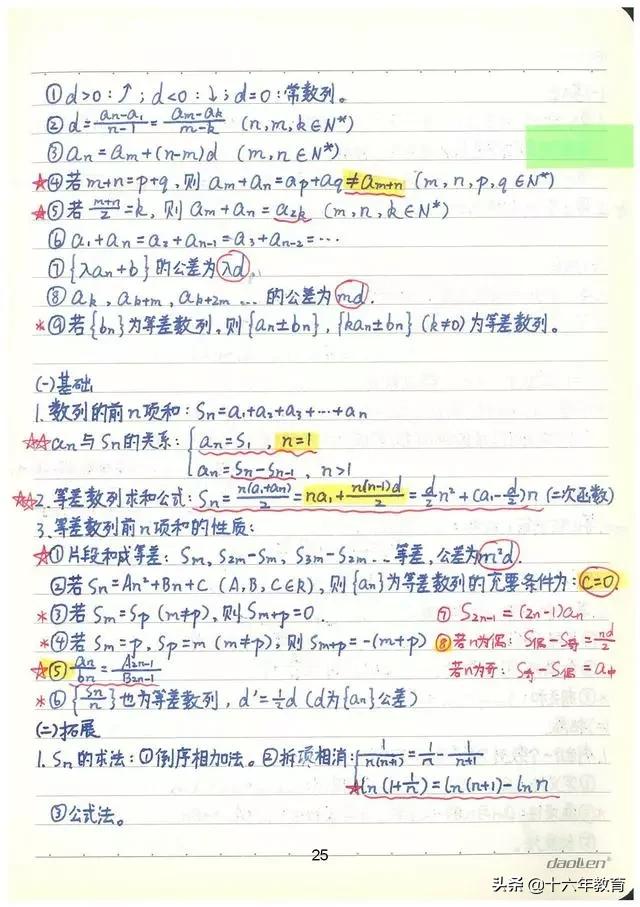 ①d>0:↑;d<0:↓;d=0:常数列。
②d=(an-a1)/(n-1)=(am-ak)/(m-k) (n,m,k∈N*)
③an=am+(n-m)d (m,n∈N*)
☆④若m+n=p+q,则am+an=ap+aq≠am+n (m,n,p,q∈N*)
☆⑤若(m+n)/2=k,则am+an=a2k (m,n,k∈N*)
⑥a1+an=a2+an-1=a3+an-2=…
⑦{λan+b}的公差为λd.
⑧ak,ak+m,ak+2m…的公差为md.
*⑨若{bn}为等差数列,则{an±bn},{kan±bn}(k≠0)为等差数列。
(一)基础
1.数列的前n项和:Sn=a1+a2+a3+…+an
☆☆an与Sn的关系:{an=S1,n=1
an=Sn-Sn-1,n>1
☆☆2.等差数列求和公式:Sn=n(a1+an)/2=na1+n(n-1)d/2=d/2n²+(a1-d/2)n(二次函数)
3.等差数列前n项和的性质:
☆①片段和成等差:Sm,S2m-Sm,S3m-S2m…等差,公差为m²d.
②若Sn=An²+Bn+C (A,B,C∈R),则{an}为等差数列的充要条件为:C=0.
*③若Sm=Sp (m≠p),则Sm+p=0 ⑦S2n-1=(2n-1)an
*④若Sm=p,Sp=m (m≠p),则Sm+p=-(m+p) ⑧若n为偶:S偶-S奇=nd/2
☆⑤an/bn=A2n-1/B2n-1 若n为奇:S奇-S偶=a中
*⑥{Sn/n}也为等差数列,d'=1/2d(d为{an}公差)
(二)拓展
1.Sn的求法:①倒序相加法。②拆项相消:{1/n(n+1)=1/n-1/(n+1)
☆ln(1+1/n)=ln(n+1)-lnn
③公式法。
25
daolen
头条@十六年教育